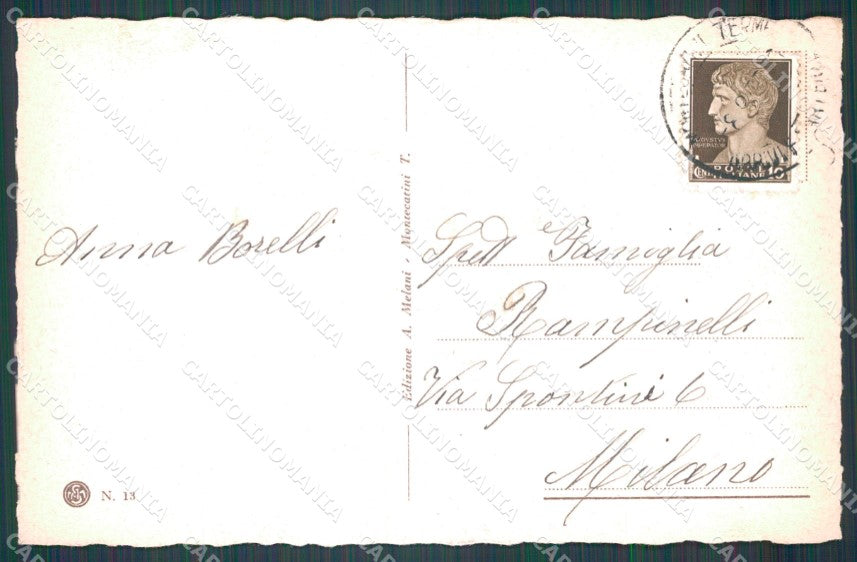 Anna Borelli
Edizione A. Melani - Montecatini T.
Spett Famiglia
Rampinelli
Via Spontini 6
Milano
N. 13
AVGVSTVS
IMPERATOR
POSTE
ITALIANE
CENT 10
TERME
CARTOLINOMANIA